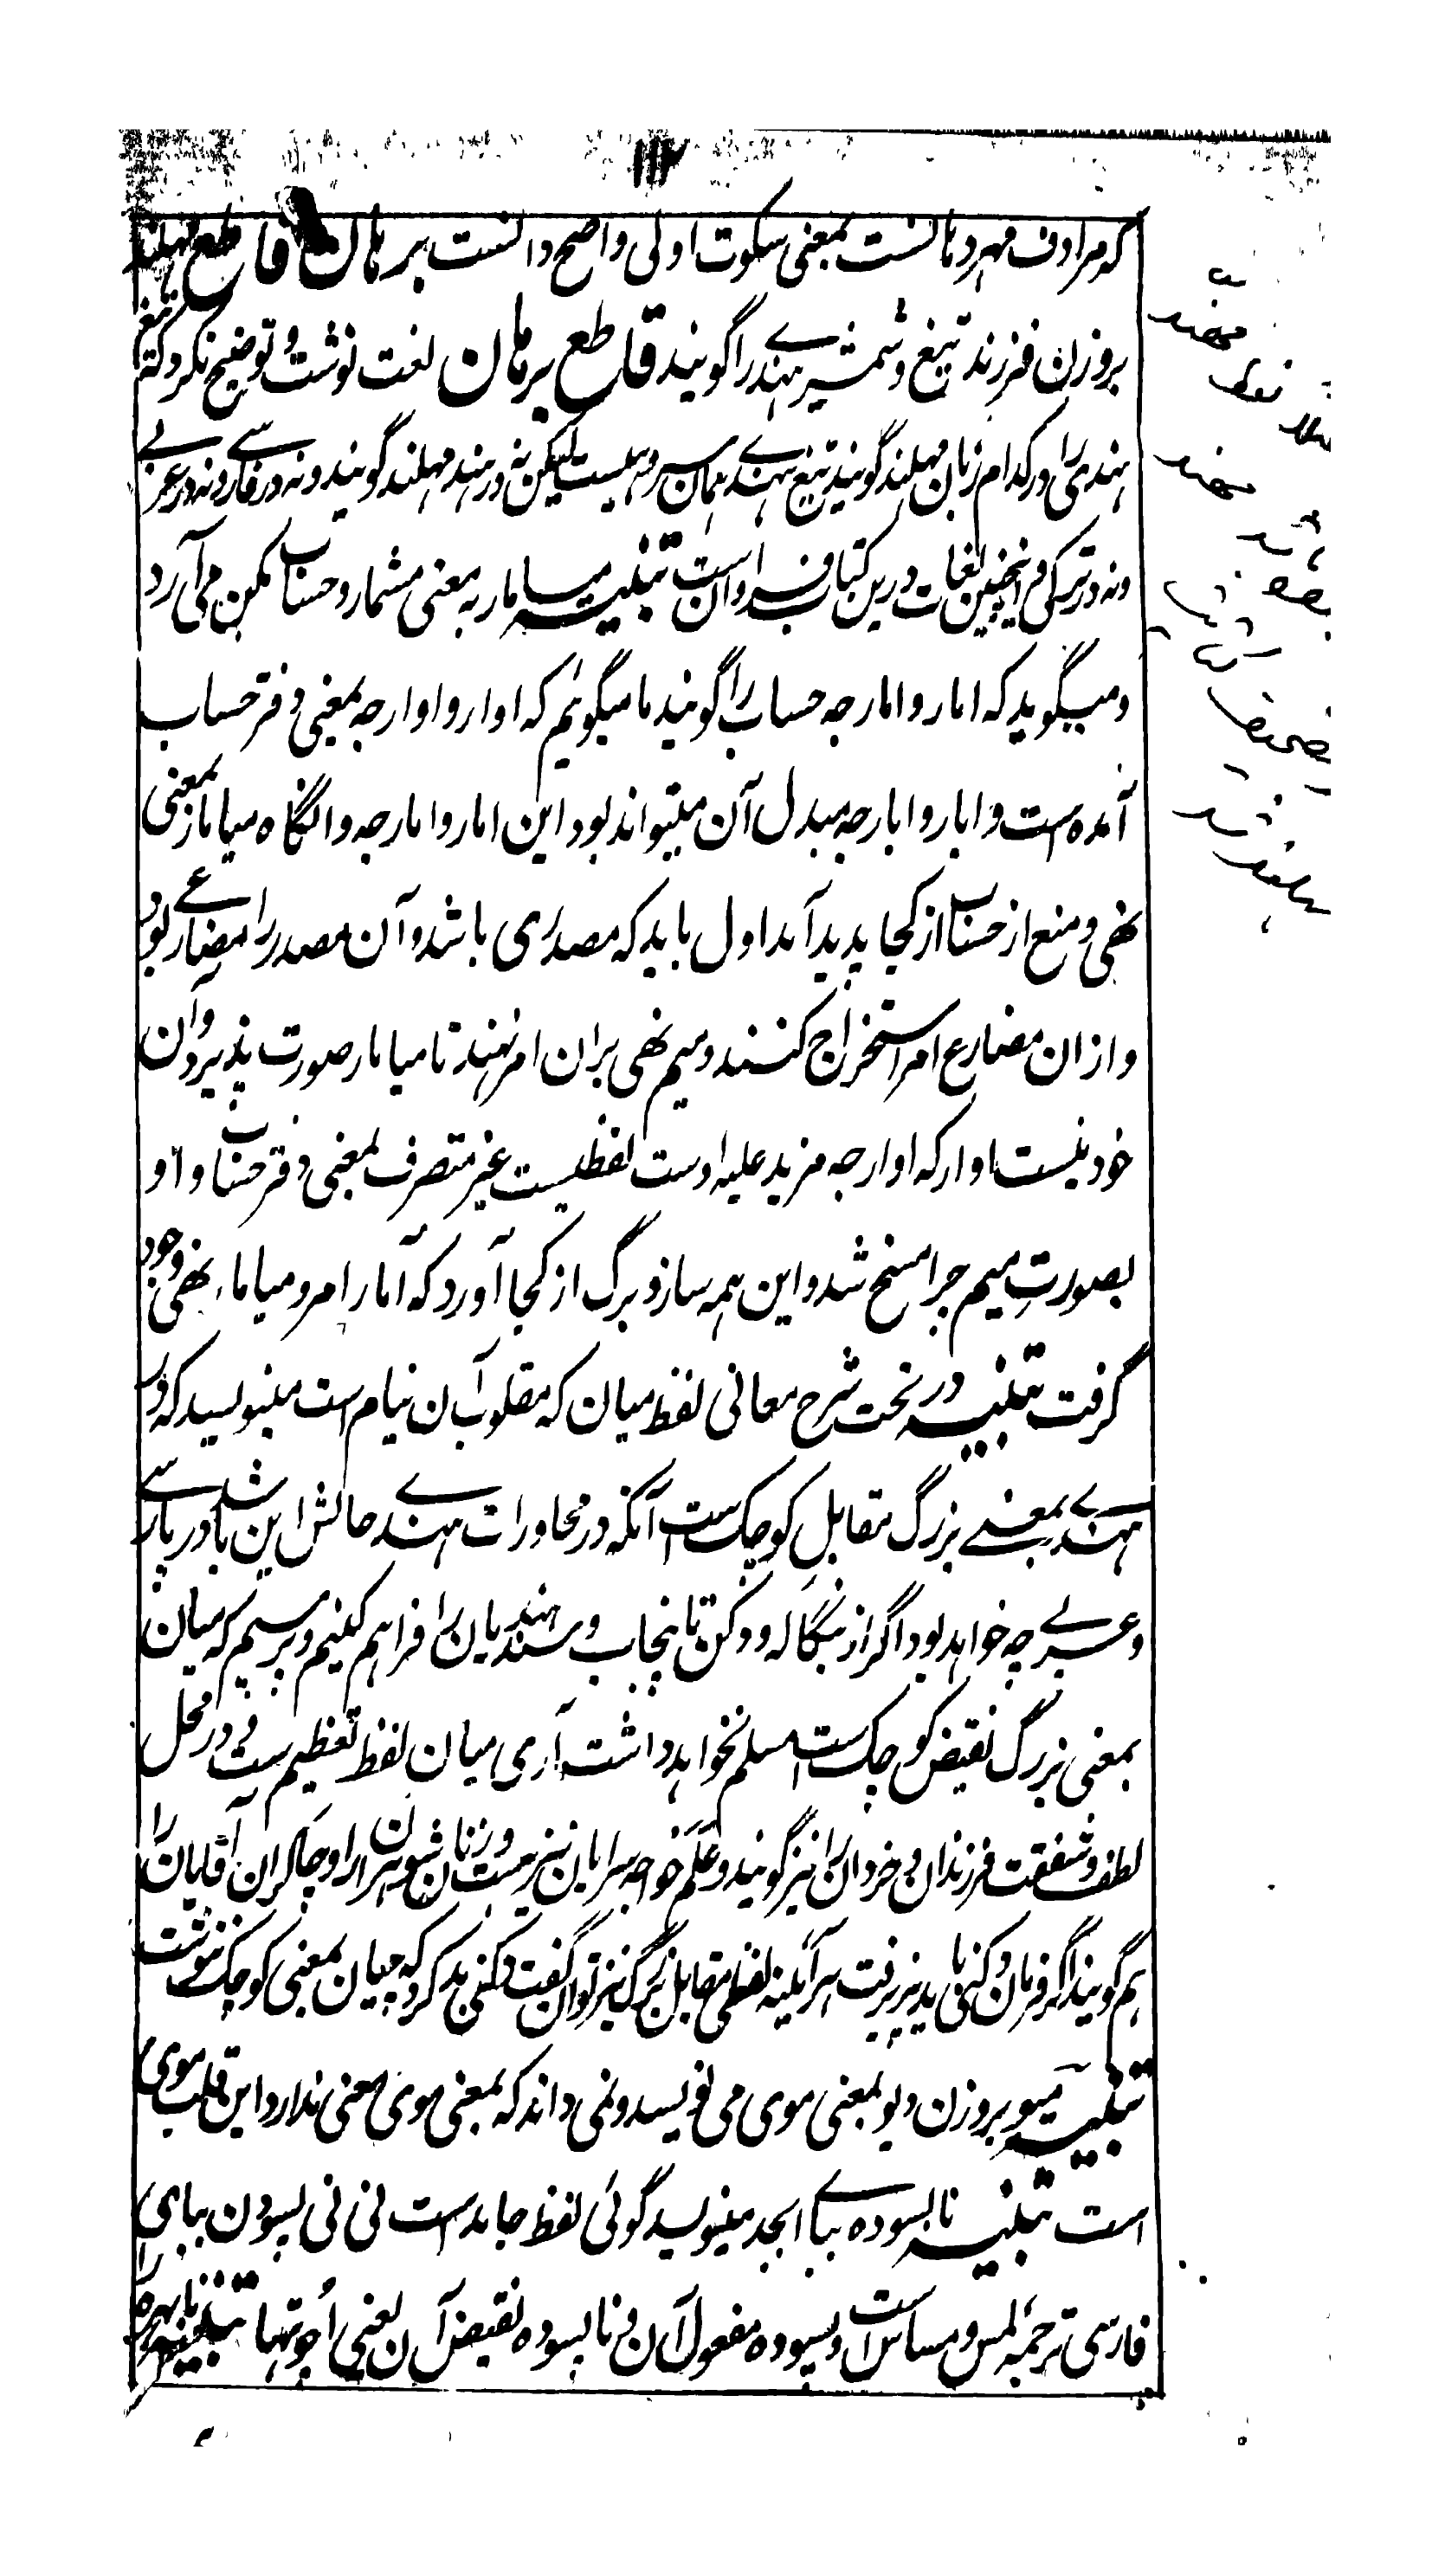 ۱۱۲
که مرادف مهر دهانست بمعنی سکوت اولی و اصح دانست برهان قاطع مهلند
بروزن فرزند تیغ و شمشیر هندے را گویند قاطع برهان لغت نوشت و توضیح نکرد که تیغ
هندی را در کدام زبان مهلند گویند تیغ هندے همان سروهیست لیکن نه در هند مهلند گویند و نه در فارسے و نه در عربے
و نه در ترکی و اینچنین لغات درین کتاب فراوان است تنبیه میامار به معنی مشمار و حساب مکن می آرد
و میگوید که امار و امارجه حساب را گویند ما میگوئیم که اوار و اوارجه بمعنی دفتر حساب
آمده است و ابار و ابارجه مبدل آن میتواند بود این امار و امارجه و انگاه میامار بمعنی
نهی و منع از حساب از کجا پدید آمد اول باید که مصدری باشد و آن مصدر را مضارعے بود
و ازان مضارع امر استخراج کنند و میم نهی بران امر نهند تا میامار صورت پذیرد و آن
خود نیست اوار که اوارجه مزید علیه اوست لفظیست غیر متصرف بمعنی دفتر حساب واو
بصورت میم چرا مسخ شد و این همه ساز و برگ از کجا آورد که آمار امر و میامار نهی وجود
گرفت تنبیه در تحت شرح معانی لفظ میان که مقلوب آن نیام است مینویسد که در
هندے بمعنے بزرگ مقابل کوچک ست آنکه در محاورات هندے حالش این باشد در پارسے
و عربے چه خواهد بود اگر از بنگاله و دکن تا پنجاب و سند هندیان را فراهم کنیم و پرسیم که میان
بمعنی بزرگ نقیض کوچک ست مسلم نخواهد داشت آری میان لفظ تعظیم ست و در محل
لطف و شفقت فرزندان و خردان را نیز گویند و علم خواجه سرایان نیزست و زنان شوهران را و چاکران آقایان را
هم گویند اگر فرمان دکنی باید پذیرفت هرآئینه لفظی مقابل بزرگ نیز توان گفت دکنی بد کرد که چیان بمعنی کوچک ننوشت
تنبیه میو بروزن دیو بمعنی موی می نویسد و نمی داند که بمعنی موی معنی ندارد این قلب موی
است تنبیه نابسوده ببائے ابجد مینویسد گوئی لفظ جامدست نی نی پسودن ببای
فارسی ترجمهٔ لمس و مساس است و پسوده مفعول آن و ناپسوده نقیض آن یعنی اچوتها تنبیه نابهره را